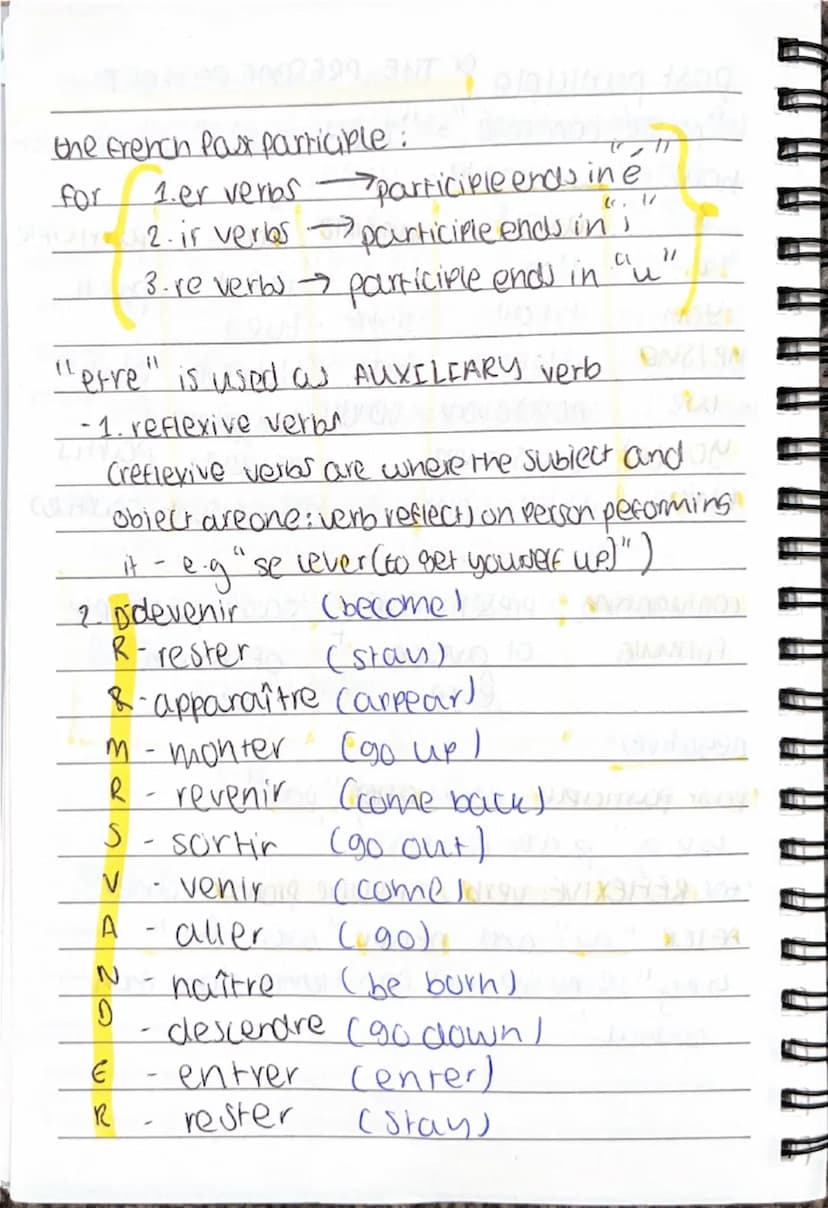 the French Past participle:
for 1. er verbs → participle ends in "é"
2. ir verbs → participle ends in "i"
3. re verbs → participle ends in "u"
"etre" is used as AUXILIARY verb
- 1. reflexive verbs
(reflexive verbs are where the subject and
object are one: verb reflects on person peforming
it - e.g "se lever (to get yourself up)")
2. D devenir (become)
R - rester (stay)
& - apparaître (appear)
M - monter (go up)
R - revenir (come back)
S - sortir (go out)
V venir (come)
A - aller (go)
N naître (be born)
D - descendre (go down)
E - entrer (enter)
R - rester (stay)